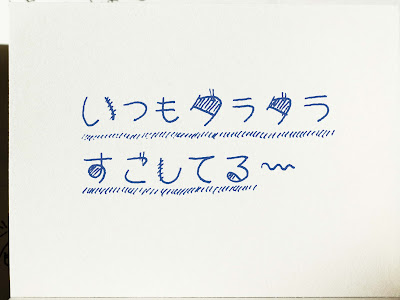 いつもダラダラ
すごしてる〜